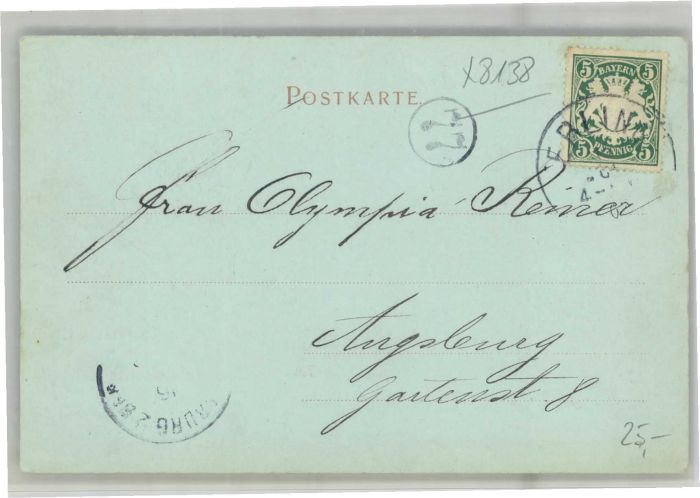 X8138
POSTKARTE.
5 BAYERN 5
5 PFENNIG 5
ERLIN
77
Frau Olympia Reiner
Augsburg
Gartenst 8
BURG 2
25,-